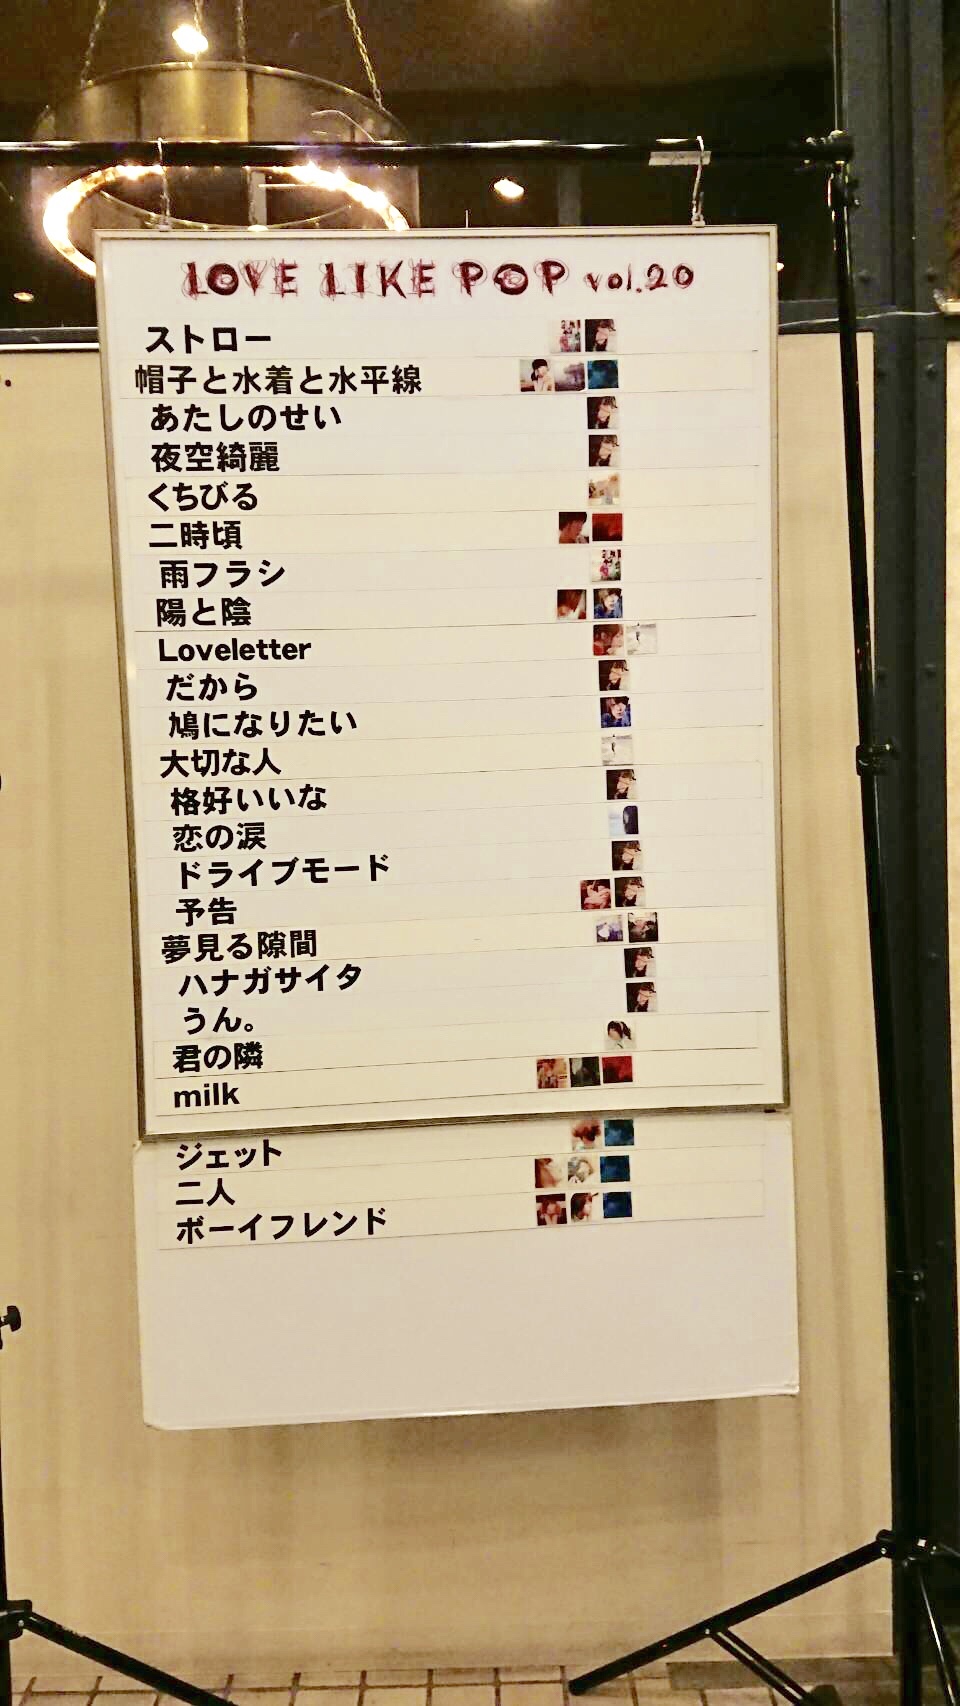 LOVE LIKE POP vol.20
ストロー
帽子と水着と水平線
あたしのせい
夜空綺麗
くちびる
二時頃
雨フラシ
陽と陰
Loveletter
だから
鳩になりたい
大切な人
格好いいな
恋の涙
ドライブモード
予告
夢見る隙間
ハナガサイタ
うん。
君の隣
milk
ジェット
二人
ボーイフレンド